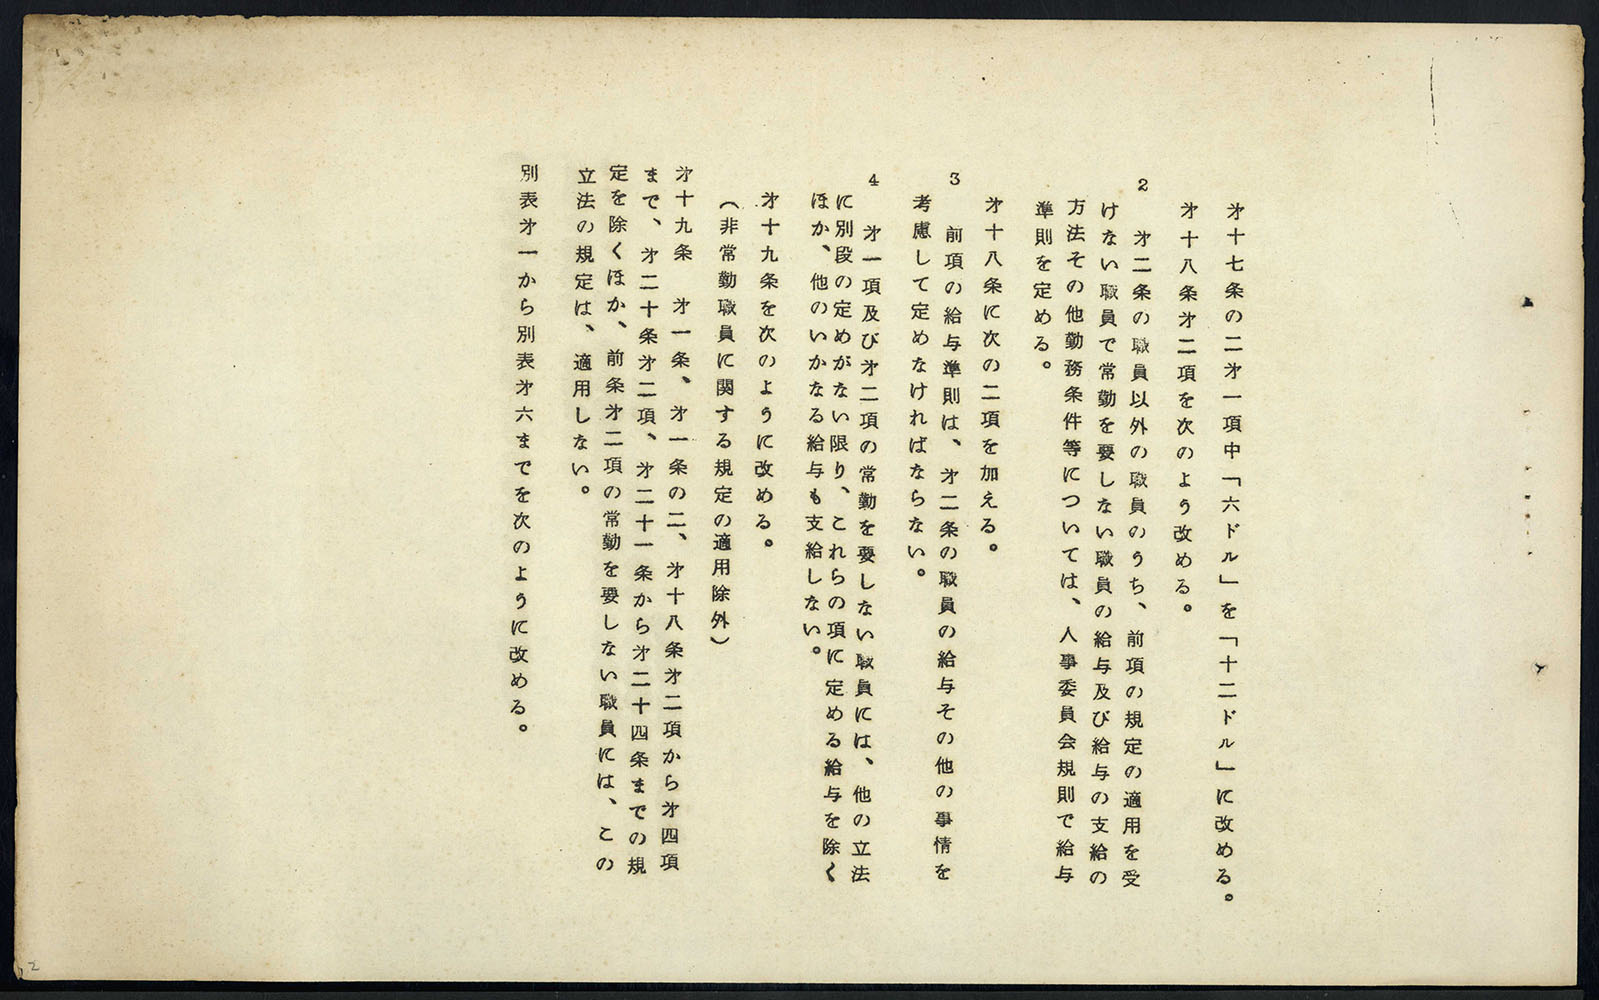 才十七条の二才一項中「六ドル」を「十二ドル」に改める。
才十八条才二項を次のよう改める。
2　才二条の職員以外の職員のうち、前項の規定の適用を受
けない職員で常勤を要しない職員の給与及び給与の支給の
方法その他勤務条件等については、人事委員会規則で給与
準則を定める。
才十八条に次の二項を加える。
3　前項の給与準則は、才二条の職員の給与その他の事情を
考慮して定めなければならない。
4　才一項及び才二項の常勤を要しない職員には、他の立法
に別段の定めがない限り、これらの項に定める給与を除く
ほか、他のいかなる給与も支給しない。
才十九条を次のように改める。
（非常勤職員に関する規定の適用除外）
才十九条　才一条、才一条の二、才十八条才二項から才四項
まで、才二十条才二項、才二十一条から才二十四条までの規
定を除くほか、前条才二項の常勤を要しない職員には、この
立法の規定は、適用しない。
別表才一から別表才六までを次のように改める。
2